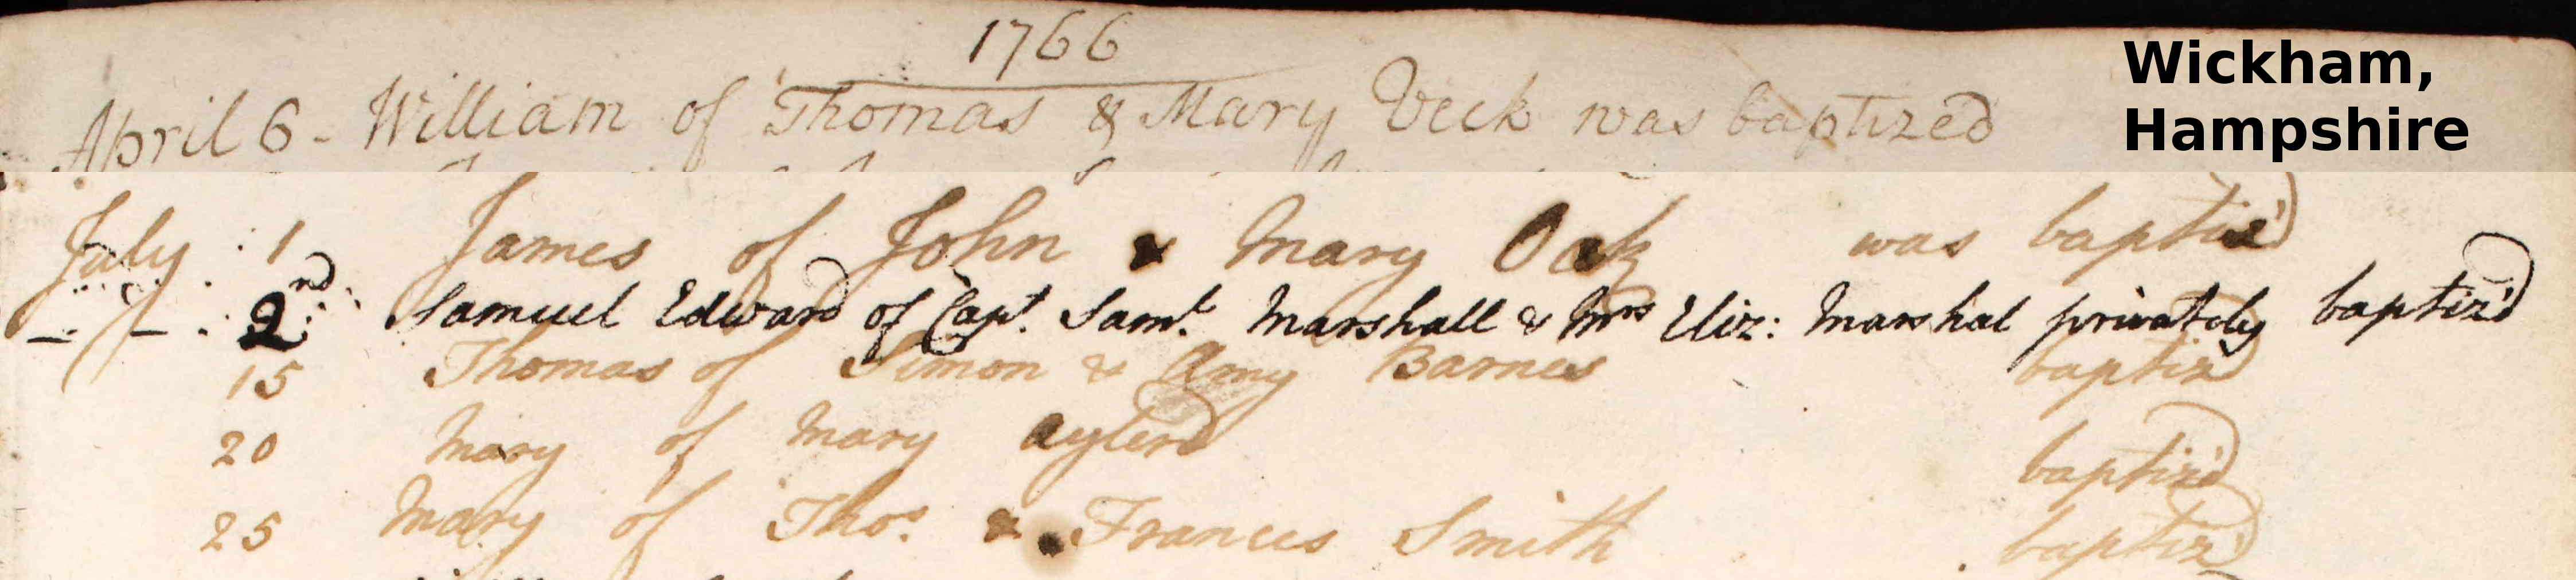 1766
Wickham,
Hampshire
April 6 - William of Thomas & Mary Veck was baptized
July : 1 James of John & Mary Oak was baptis'd
— — . 2nd: Samuel Edward of Capt. Saml. Marshall & Mrs Eliz: Marshal privately baptiz'd
15 Thomas of Simon & Amy Barnes baptiz'd
20 Mary of Mary Aylerd baptiz'd
25 Mary of Thos. & Frances Smith baptiz'd